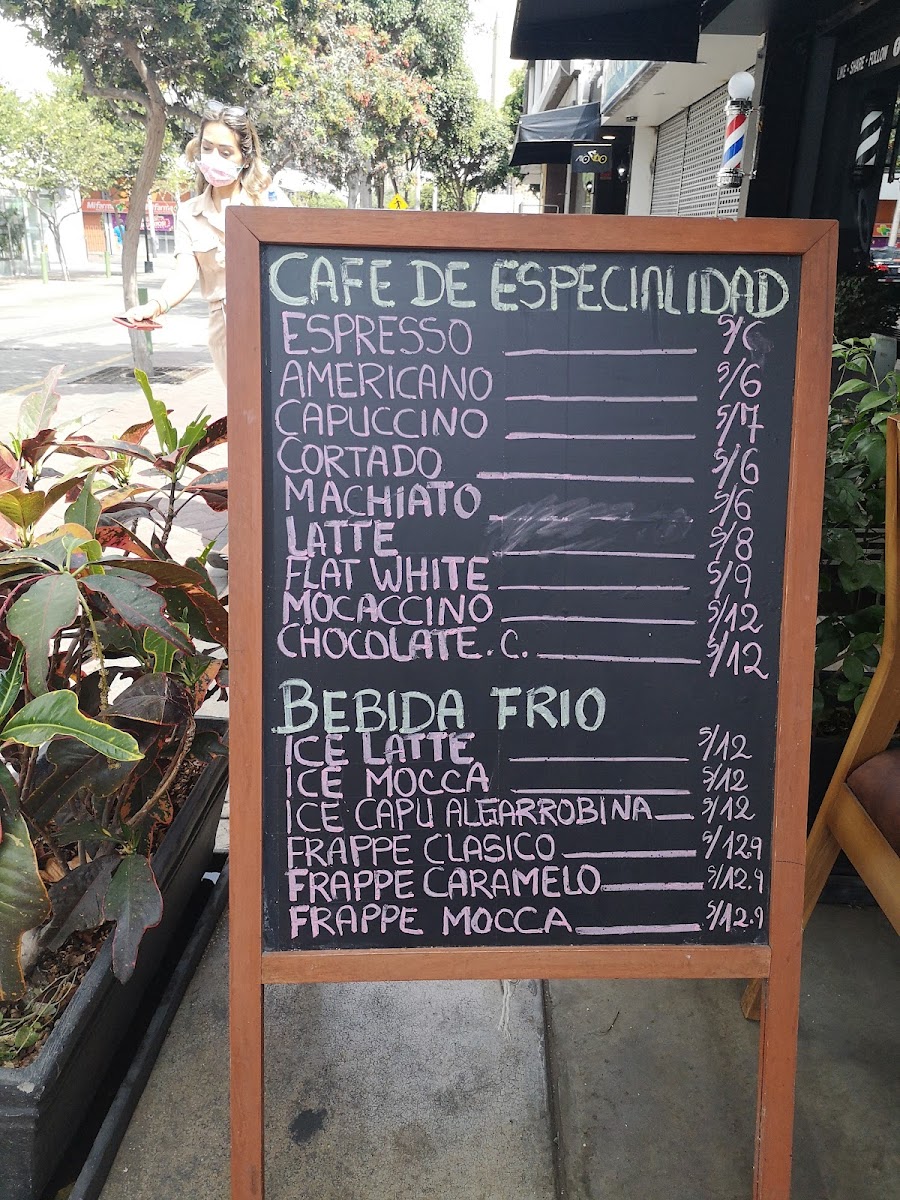 LIKE - SHARE - FOLLOW
Mifarma
CAFE DE ESPECIALIDAD
ESPRESSO S/6
AMERICANO S/6
CAPUCCINO S/7
CORTADO S/6
MACHIATO S/6
LATTE S/8
FLAT WHITE S/9
MOCACCINO S/12
CHOCOLATE.C. S/12
BEBIDA FRIO
ICE LATTE S/12
ICE MOCCA S/12
ICE CAPU ALGARROBINA S/12
FRAPPE CLASICO S/129
FRAPPE CARAMELO S/12.9
FRAPPE MOCCA S/12.9